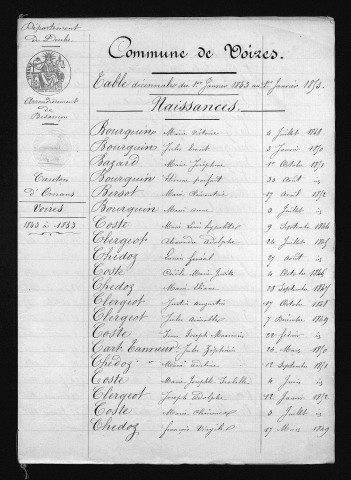 Département
du Doubs
Arrondissement
de
Besançon
Canton
d'Ornans
Voires
1843 à 1853
Commune de Voires.
Table décennales du 1er Janvier 1843 au 1er Janvier 1853.
Naissances.
Bourquin Marie 4 Juillet 1848
Bourquin Jules 3 Janvier 1850
Bazard Marie Joséphine 1er Octobre 1851
Bourquin Etienne 30 Août id
Bersot Marie 17 Avril 1852
Bourquin Marie Anne 3 Juillet id
Coste Marie Hippolyte 9 Septembre 1844
Clergeot Alexandre Adolphe 24 Juillet 1845
Chedoz 27 Août id
Coste Marie 4 Octobre 1846
Chedoz Marie 28 Septembre 1847
Clergeot Augustin 17 Octobre 1848
Clergeot Jules 7 Décembre 1849
Coste Jean Joseph 22 Février id
Cart Tanneur Jules Zéphirin 26 Mars 1850
Chedoz Marie 12 Septembre 1851
Coste Marie Josephe 4 Juin id
Clergeot Joseph Adolphe 12 Janvier 1852
Coste Marie 3 Juillet id
Chedoz François 17 Mars 1849